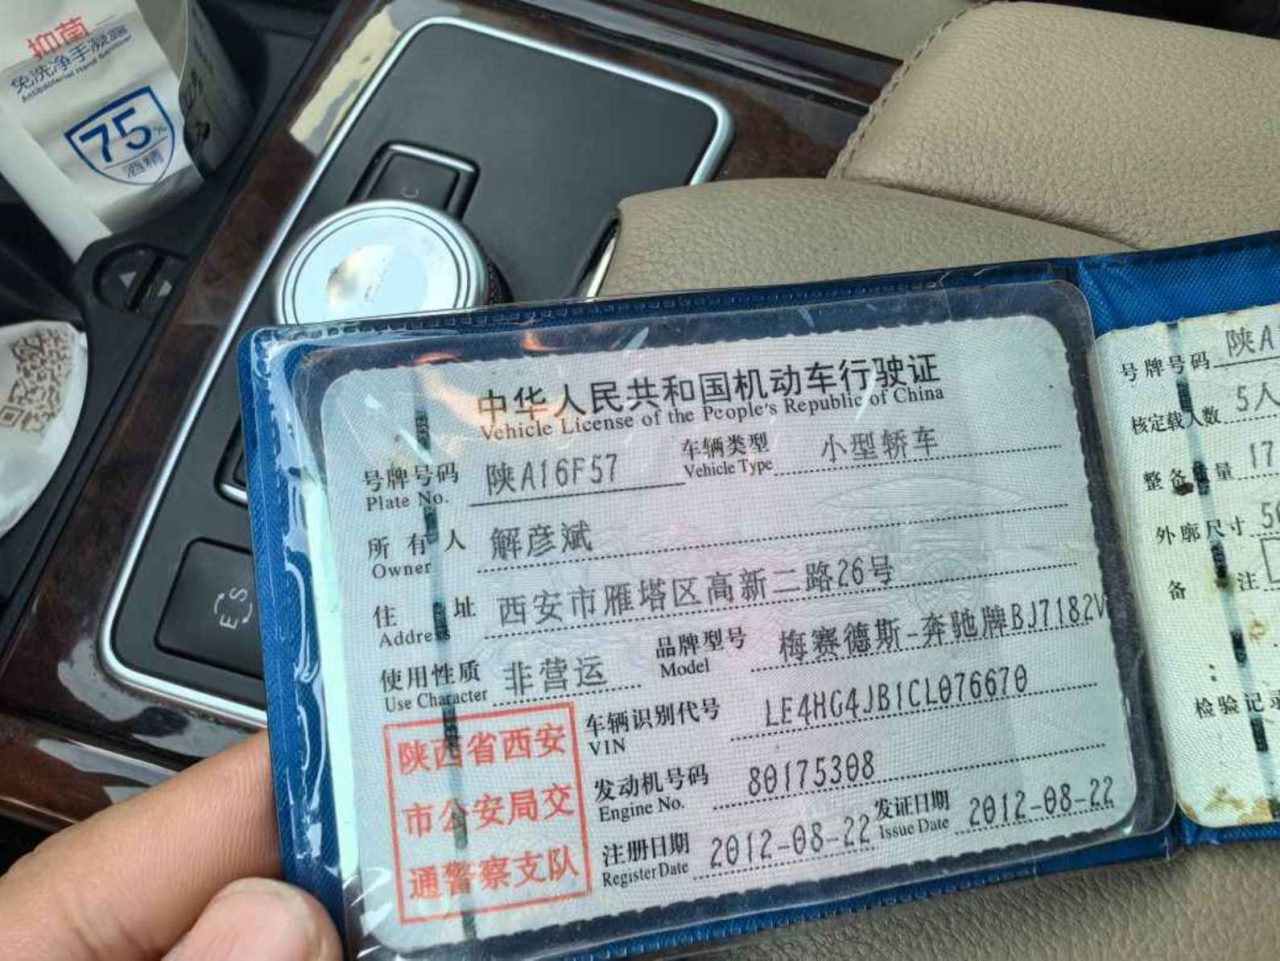 抑菌
免洗净手凝露
Antibacterial Hand Sanitizer
75%
酒精
E S
中华人民共和国机动车行驶证
Vehicle License of the People's Republic of China
号牌号码 陕A16F57 车辆类型 小型轿车
Plate No. Vehicle Type
所有人 解彦斌
Owner
住址 西安市雁塔区高新二路26号
Address
使用性质 非营运 品牌型号 梅赛德斯-奔驰牌BJ7182V
Use Character Model
陕西省西安
市公安局交
通警察支队
车辆识别代号 LE4HG4JB1CL076670
VIN
发动机号码 80175308
Engine No.
注册日期 2012-08-22 发证日期 2012-08-22
Register Date Issue Date
号牌号码 陕A
核定载人数 5人
整备质量 17
外廓尺寸 50
备注
检验记录